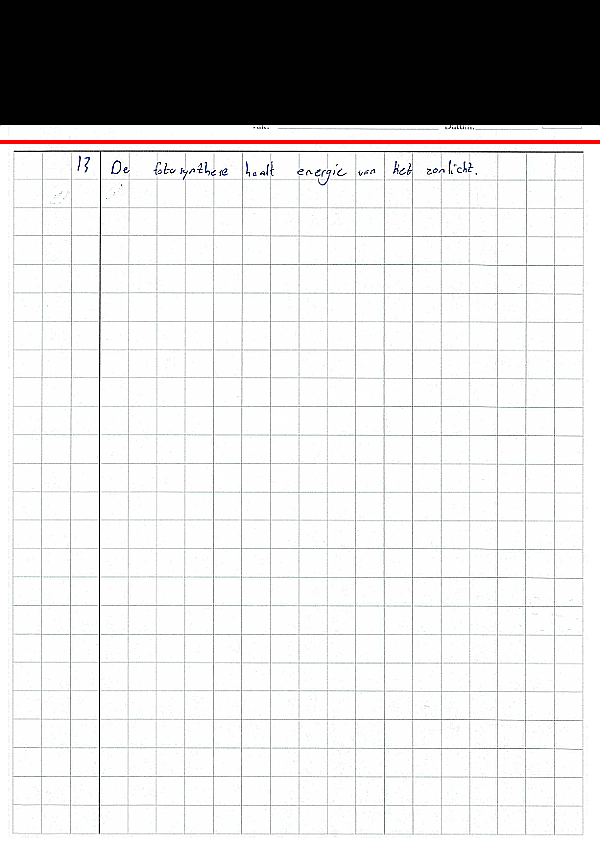 Datum:
13 De fotosynthese haalt energie van het zonlicht.